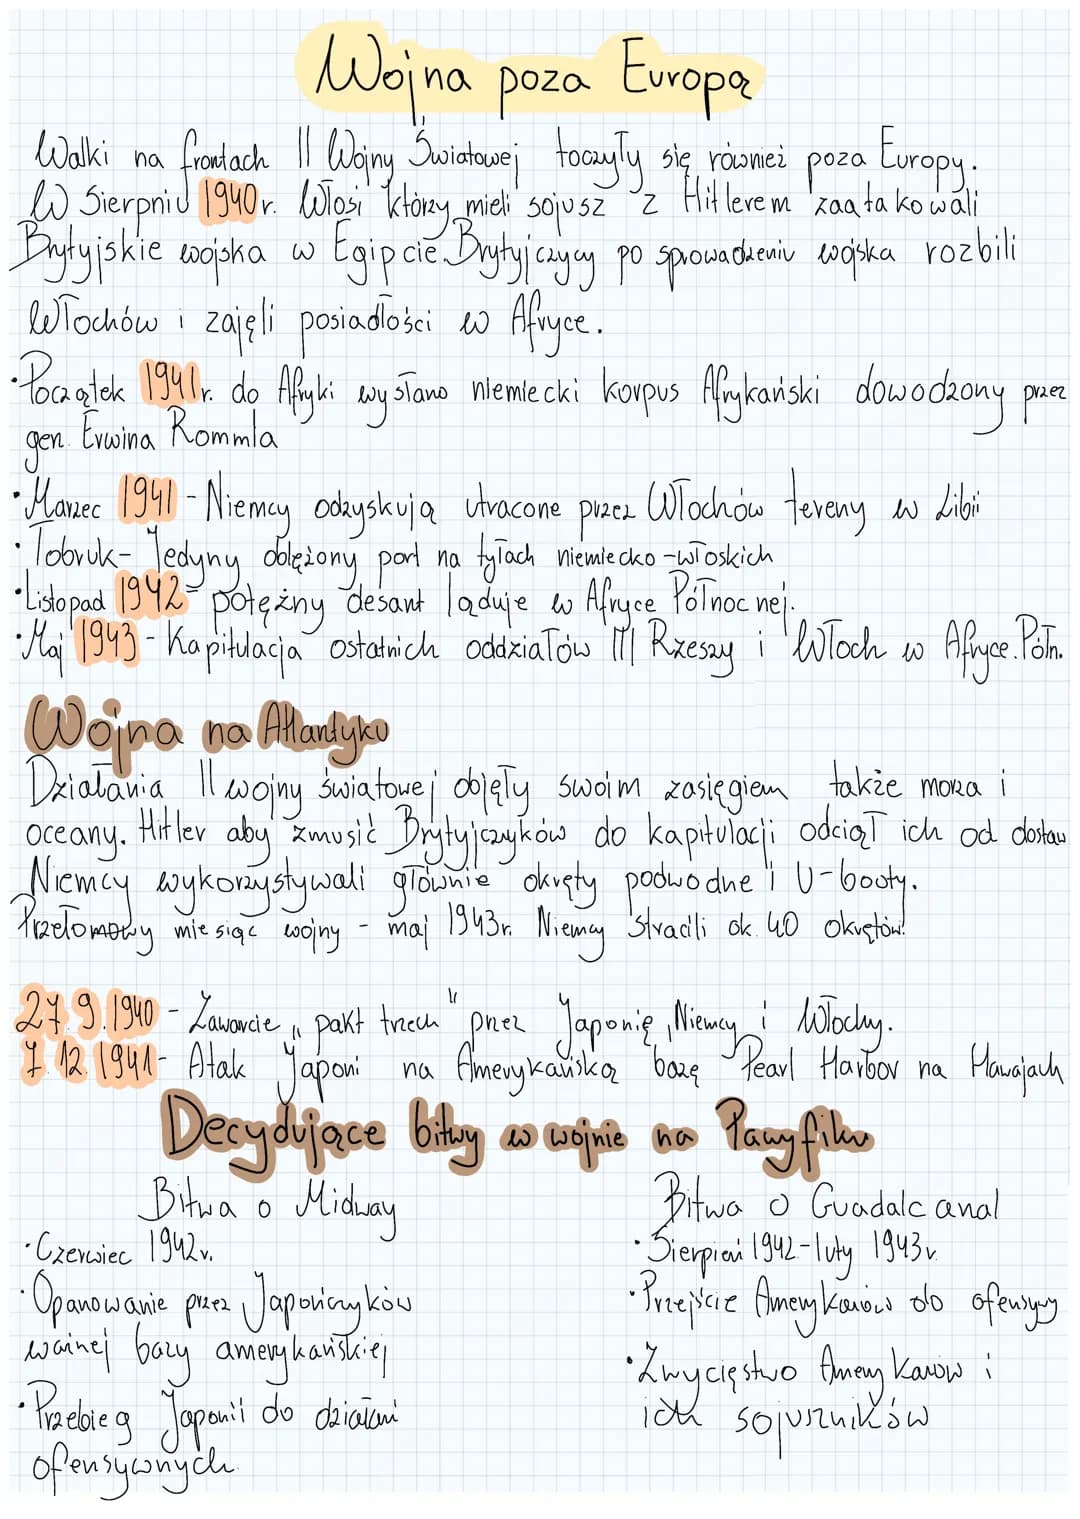 Wojna poza Europą
Walki na frontach II Wojny Światowej toczyły się również poza Europy.
W Sierpniu 1940r. Włosi którzy mieli sojusz z Hitlerem zaatakowali
Brytyjskie wojska w Egipcie. Brytyjczycy po sprowadzeniu wojska rozbili
Włochów i zajęli posiadłości w Afryce.
•Początek 1941r. do Afryki wysłano niemiecki korpus Afrykański dowodzony przez
gen. Erwina Rommla
•Marzec 1941 - Niemcy odzyskują utracone przez Włochów tereny w Libii
•Tobruk- Jedyny oblężony port na tyłach niemiecko-włoskich
•Listopad 1942- potężny desant ląduje w Afryce Północnej.
•Maj 1943 - Kapitulacja ostatnich oddziałów III Rzeszy i Włoch w Afryce.Półn.
Wojna na Atlantyku
Działania II wojny światowej objęły swoim zasięgiem także morza i
oceany. Hitler aby zmusić Brytyjczyków do kapitulacji odciął ich od dostaw
Niemcy wykorzystywali głównie okręty podwodne i U-booty.
Przełomowy miesiąc wojny - maj 1943r. Niemcy Stracili ok. 40 okrętów!
27.9.1940 - Zawarcie „pakt trzech" przez Japonię, Niemcy i Włochy.
7.12.1941- Atak Japoni na Amerykańską bazę Pearl Harbor na Hawajach
Decydujące bitwy w wojnie na Pacyfiku
Bitwa o Midway
•Czerwiec 1942r.
•Opanowanie przez Japończyków
ważnej bazy amerykańskiej
•Przebieg Japonii do działań
ofensywnych.
Bitwa o Guadalcanal
•Sierpień 1942-luty 1943r.
•Przejście Amerykanów do ofensywy
•Zwycięstwo Amerykanów i
ich sojuszników